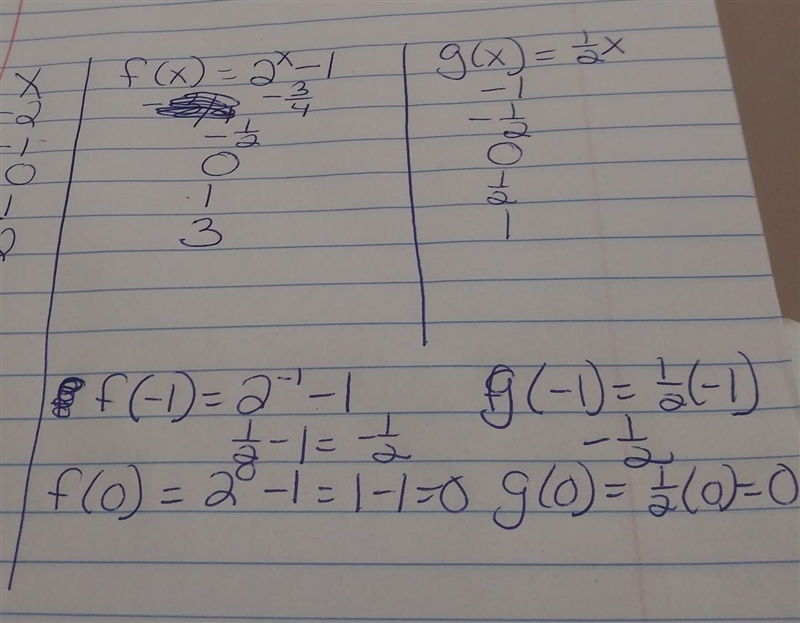 x f(x) = 2^x - 1 g(x) = ½x
-2 -¾ -1
-1 -½ -½
0 0 0
1 1 ½
2 3 1
f(-1) = 2^-1 - 1 g(-1) = ½(-1)
½ - 1 = -½ -½
f(0) = 2^0 - 1 = 1 - 1 = 0 g(0) = ½(0) = 0